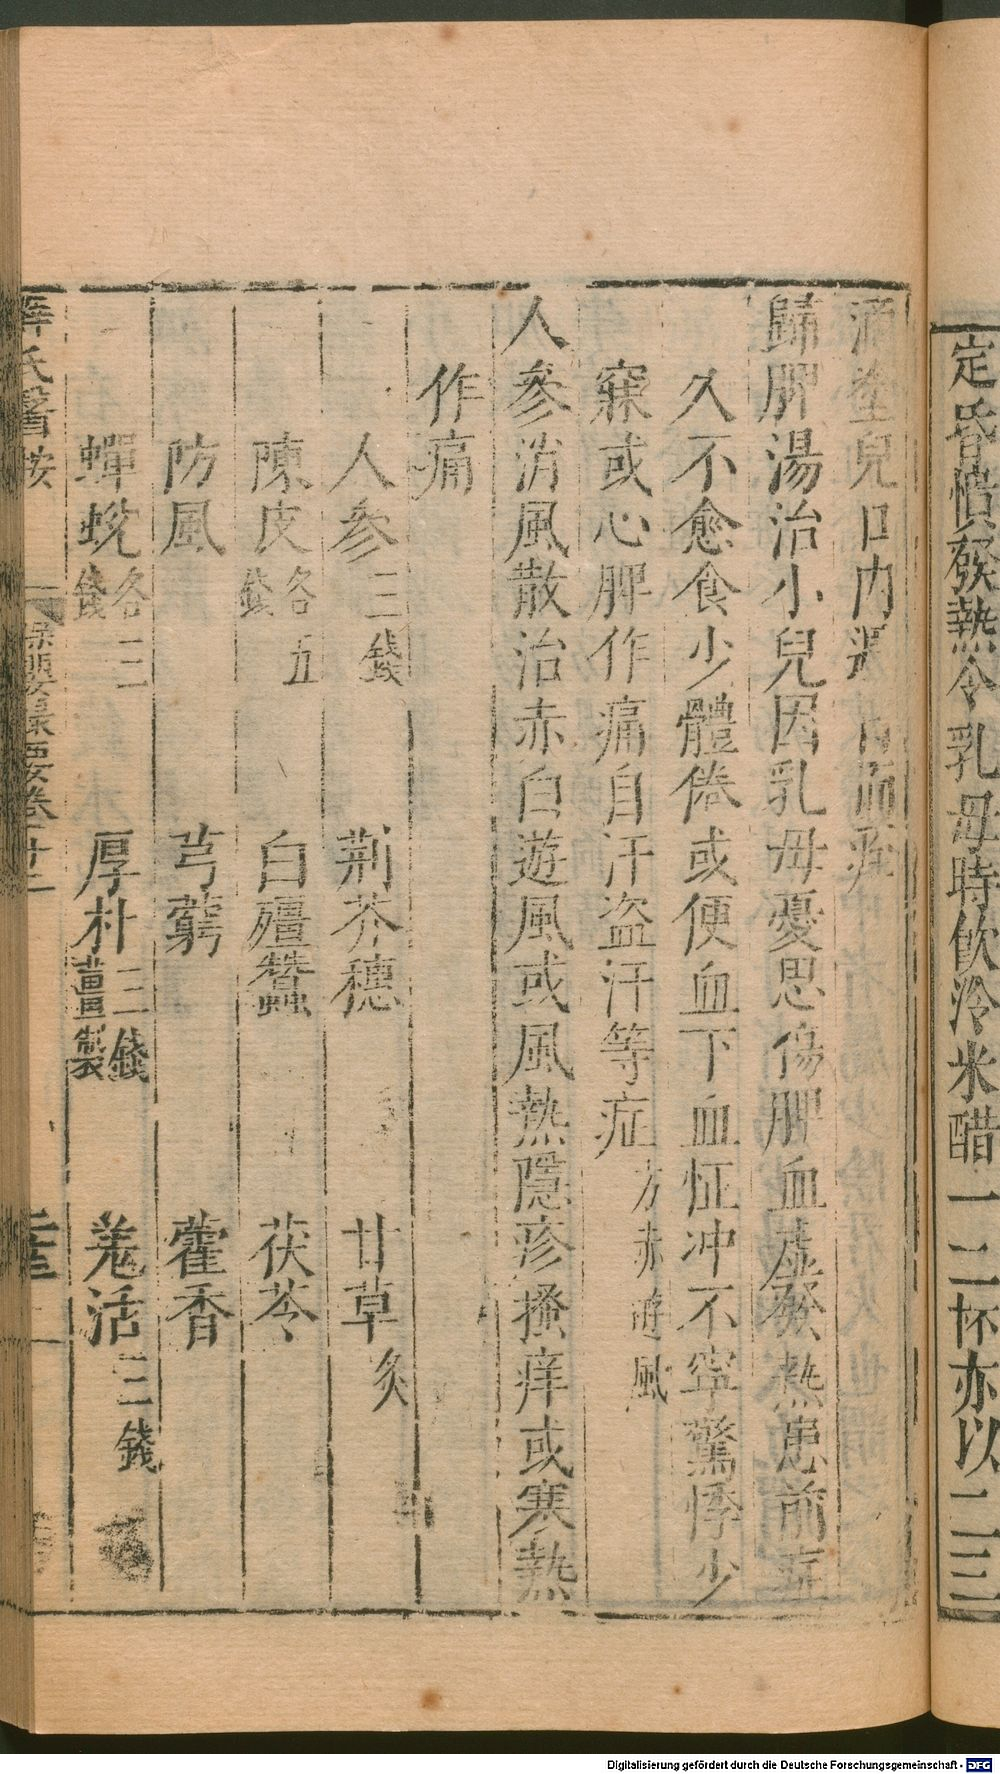 定昏憒發熱令乳母時飲冷米醋一二杯亦以二三
酒塗兒口内
歸脾湯治小兒因乳母憂思傷脾血虚發熱患前症
久不愈食少體倦或便血下血怔冲不寧驚悸少
寐或心脾作痛自汗盗汗等症方赤遊風
人參消風散治赤白遊風或風熱隱疹搔痒或寒熱
作痛
人參三錢 荆芥穗 甘草炙
陳皮各五錢 白殭蠶 茯苓
防風 芎藭 藿香
蟬蛻各二錢 厚朴二錢薑製 羗活三錢
薛氏醫按 保嬰撮要卷十二
Digitalisierung gefördert durch die Deutsche Forschungsgemeinschaft - DFG